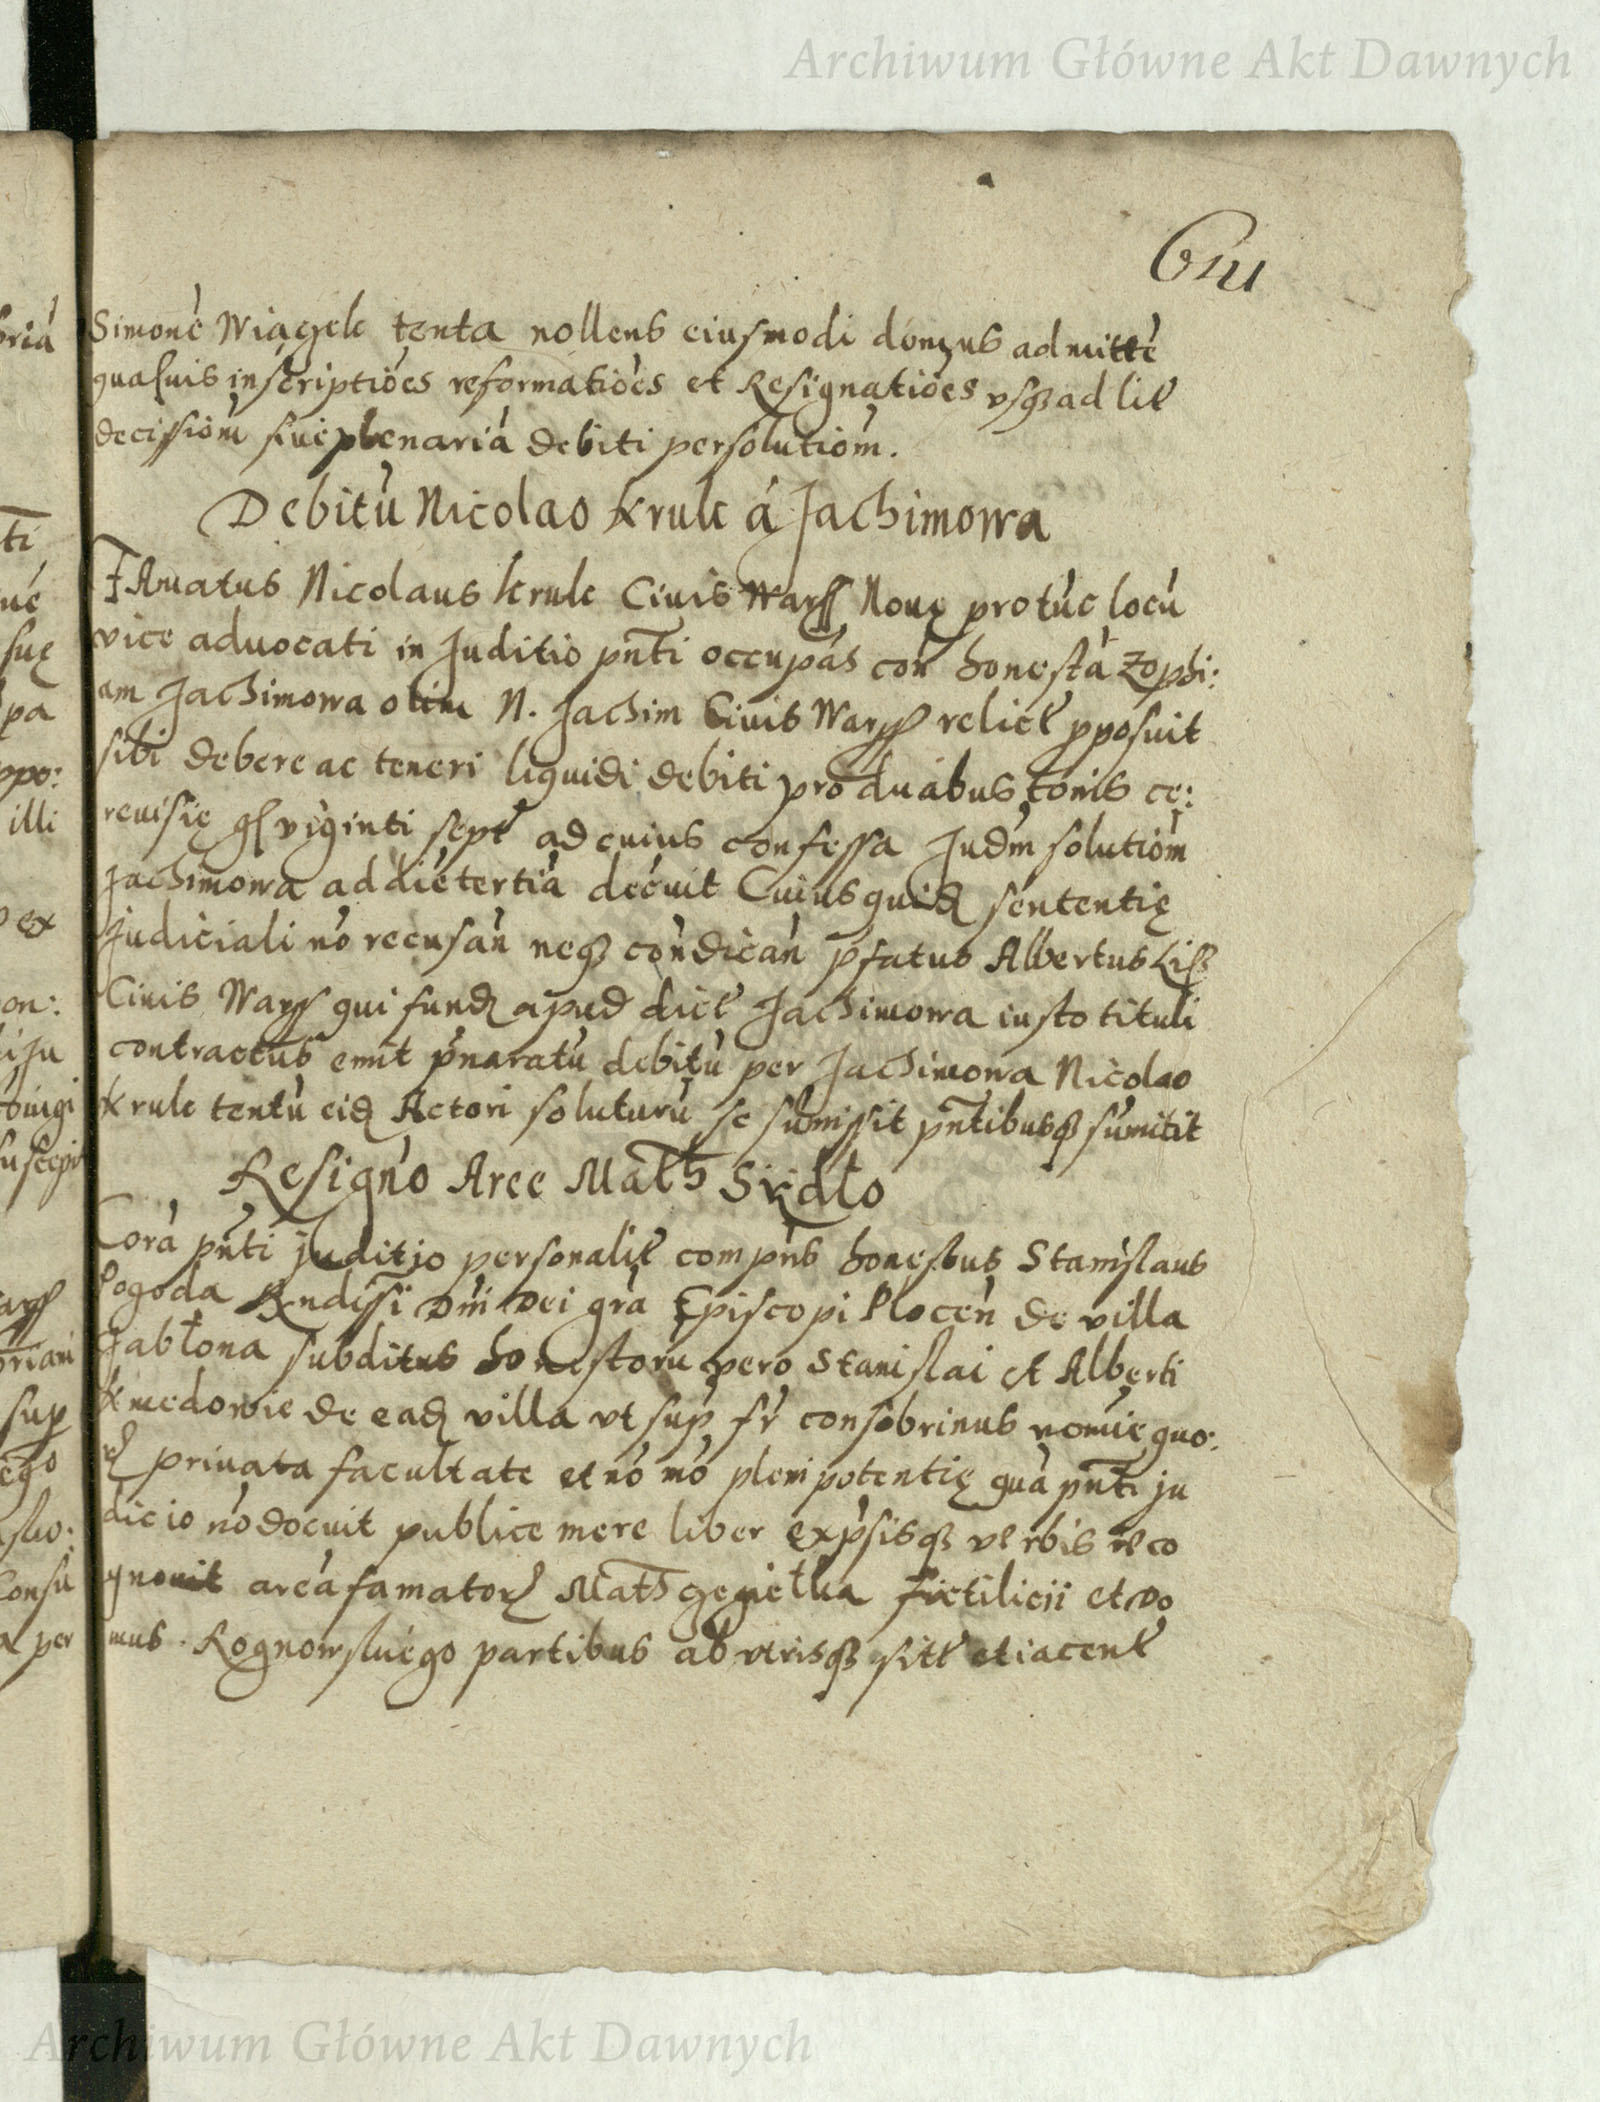 Archiwum Główne Akt Dawnych
Simonē Wiązek tenta nollens eiusmodi domus admittē
quasuis inscriptiōes reformatiōes et Resignatiōes vsqꝫ ad lit
decissiōm siue plenariā debiti persolutiōm.
Debitū Nicolao Krule á Jachimowa
FAmatus Nicolaus Krule Ciuis Warss Nouę protūc locū
vice aduocati in Juditio pn̄ti occupās con honestā Zophi:
am Jachimowa olim N. Jachim Ciuis Warss relict pposuit
sibi debere ac teneri liquidi debiti pro duabus tonis ce:
reuisię gl viginti sept ad cuius confessa Judm solutiōm
Jachimowa ad diē tertiā decuit Cuiusquidꝫ sententię
Judiciali nō recusan neqꝫ condican pfatus Albertus
Ciuis Warss qui fundꝫ apud dict Jachimowa iusto tituli
contractus emit pnaratū debitū per Jachimowa Nicolao
Krule tentū eidꝫ Actori soluturū se sumissit pn̄tibusqꝫ sumitit
Resignō Aree Math Sidło
Corā pn̄ti juditio personalit compns honestus Stanislaus
Pogoda Rndissi Dni Dei gra Episcopi Plocen de villa
Jabłona subditus honestoru vero Stanislai et Alberti
de eadꝫ villa vt sup fr consobrinus nomie quo:
rꝫ priuata facultate et nō mō plenipotentię quā pn̄ti ju
dicio nō docuit publice mere liber expsisqꝫ verbis reco
gnouit areā famatorꝫ Math fictilicii et do
mus partibus ab vtrisqꝫ sitt et iacent
Archiwum Główne Akt Dawnych